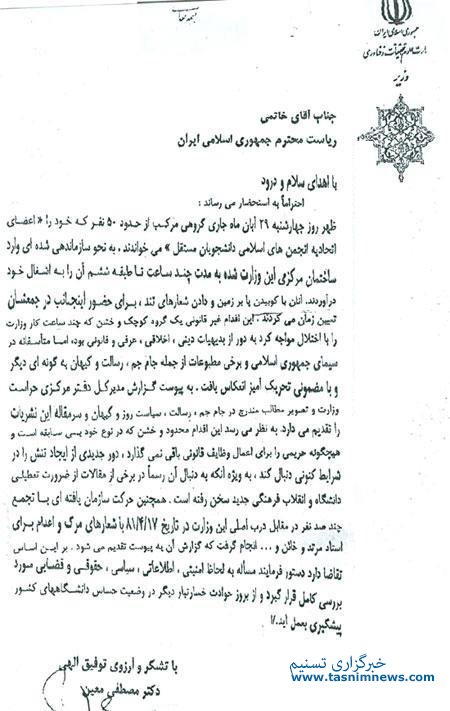 بسمه تعالی
جمهوری اسلامی ایران
وزارت علوم تحقیقات و فناوری
وزیر
جناب آقای خاتمی
ریاست محترم جمهوری اسلامی ایران
با اهدای سلام و درود
احتراماً به استحضار می رساند :
ظهر روز چهارشنبه ۲۹ آبان ماه جاری گروهی مرکب از حدود ۵۰ نفر که خود را « اعضای
اتحادیه انجمن های اسلامی دانشجویان مستقل » می خواندند . به نحو سازماندهی شده ای وارد
ساختمان مرکزی این وزارت شده به مدت چند ساعت تا طبقه ششم آن را به اشغال خود
درآوردند. آنان با کوبیدن پا بر زمین و دادن شعارهای تند ، برای حضور اینجانب در جمعشان
تعیین زمان می کردند . این اقدام غیر قانونی یک گروه کوچک و خشن که چند ساعت کار وزارت
را با اختلال مواجه کرد به دور از بدیهیات دینی ، اخلاقی ، عرفی و قانونی بود، اما متأسفانه در
سیمای جمهوری اسلامی و برخی مطبوعات از جمله جام جم ، رسالت و کیهان به گونه ای دیگر
و با مضمونی تحریک آمیز انعکاس یافت . به پیوست گزارش مدیرکل دفتر مرکزی حراست
وزارت و تصویر مطالب مندرج در جام جم ، رسالت ، سیاست روز و کیهان و سرمقاله این نشریات
را تقدیم می دارد. به نظر می رسد این اقدام محدود و خشن که در نوع خود بسی سابقه است و
هیچگونه حریمی را برای اعمال وظایف قانونی باقی نمی گذارد ، دور جدیدی از ایجاد تنش را در
شرایط کنونی دنبال کند ، به ویژه آنکه به دنبال آن رسماً در برخی از مقالات از ضرورت تعطیلی
دانشگاه و انقلاب فرهنگی جدید سخن رفته است . همچنین حرکت سازمان یافته ای با تجمع
چند صد نفر در مقابل درب اصلی این وزارت در تاریخ ۸۱/۴/۱۷ با شعارهای مرگ و اعدام برای
استاد مرتد و خائن و ... انجام گرفت که گزارش آن به پیوست تقدیم می شود . بر این اساس
تقاضا دارد دستور فرمایند مسأله به لحاظ امنیتی ، اطلاعاتی ، سیاسی ، حقوقی و قضایی مورد
بررسی کامل قرار گیرد و از بروز حوادث خسارتبار دیگر در وضعیت حساس دانشگاههای کشور
پیشگیری بعمل آید./
با تشکر و آرزوی توفیق الهی
دکتر مصطفی معین
خبرگزاری تسنیم
www.tasnimnews.com